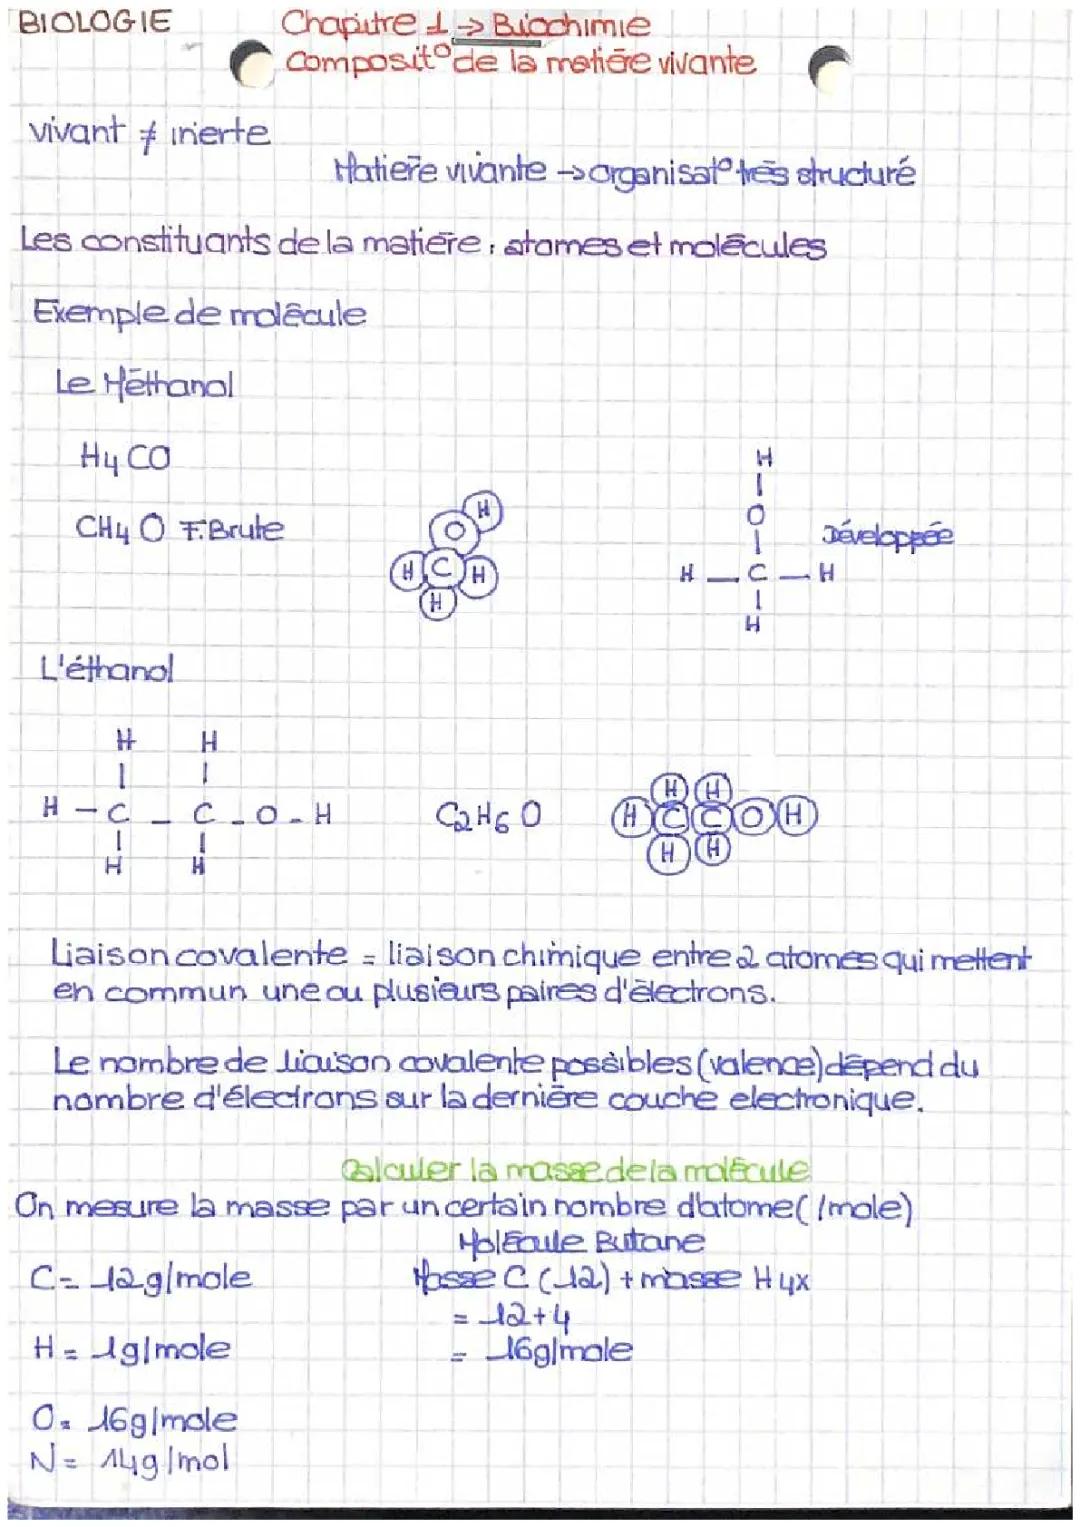 BIOLOGIE
Chapitre 1 → Biochimie
Composit° de la matière vivante
vivant ≠ inerte
Matière vivante → organisat° très structuré
Les constituants de la matière : atomes et molécules
Exemple de molécule
Le Méthanol
H4 CO
CH4 O F.Brute
H
O
H C H
H
H
|
O
|
H — C — H
|
H
Développée
L'éthanol
H H
| |
H - C - C - O - H
| |
H H
C2H6O
H H
H C C O H
H H
Liaison covalente = liaison chimique entre 2 atomes qui mettent
en commun une ou plusieurs paires d'électrons.
Le nombre de liaison covalente possibles (valence) dépend du
nombre d'électrons sur la dernière couche electronique.
Calculer la masse de la molécule
On mesure la masse par un certain nombre d'atome (/mole)
Molécule Butane
C = 12g/mole
Masse C (12) + masse H 4x
= 12+4
H = 1g/mole
= 16g/mole
O = 16g/mole
N = 14g/mol